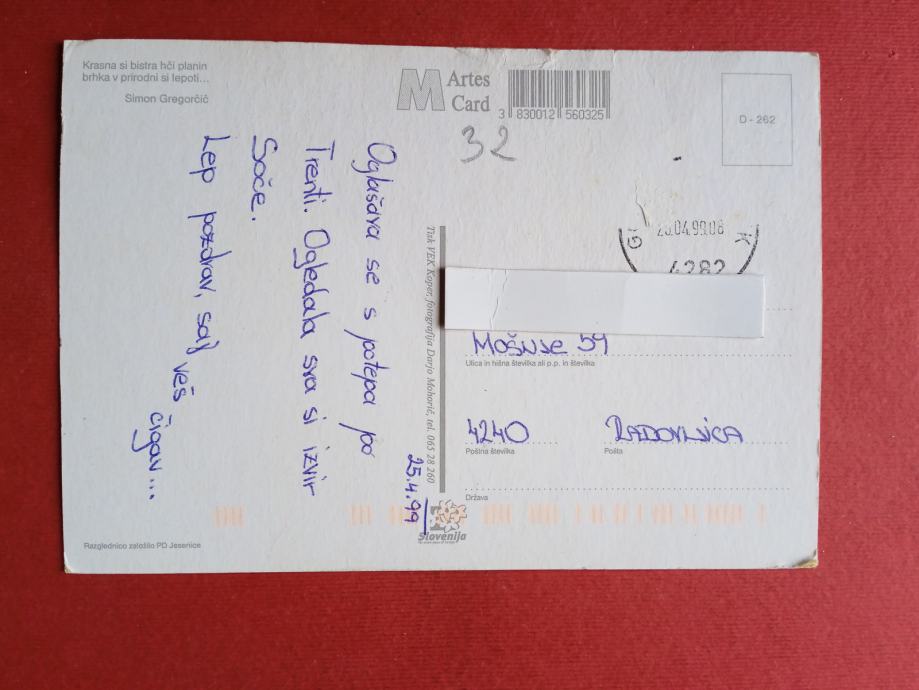 Krasna si bistra hči planin
brhka v prirodni si lepoti...
Simon Gregorčič
M Artes
Card
3 830012 560325
D - 262
32
Oglašava se s potepa po
Trenti. Ogledala sva si izvir
Soče.
Lep pozdrav, saj veš čigav...
25.4.99
Tisk VEK Koper, fotografija Darjo Mohorič, tel. 065 28 260
4282
Mošnje 59
Ulica in hišna številka ali p.p. in številka
4240 RADOVLJICA
Poštna številka Pošta
Država
Slovenija
Razglednico založilo PD Jesenice